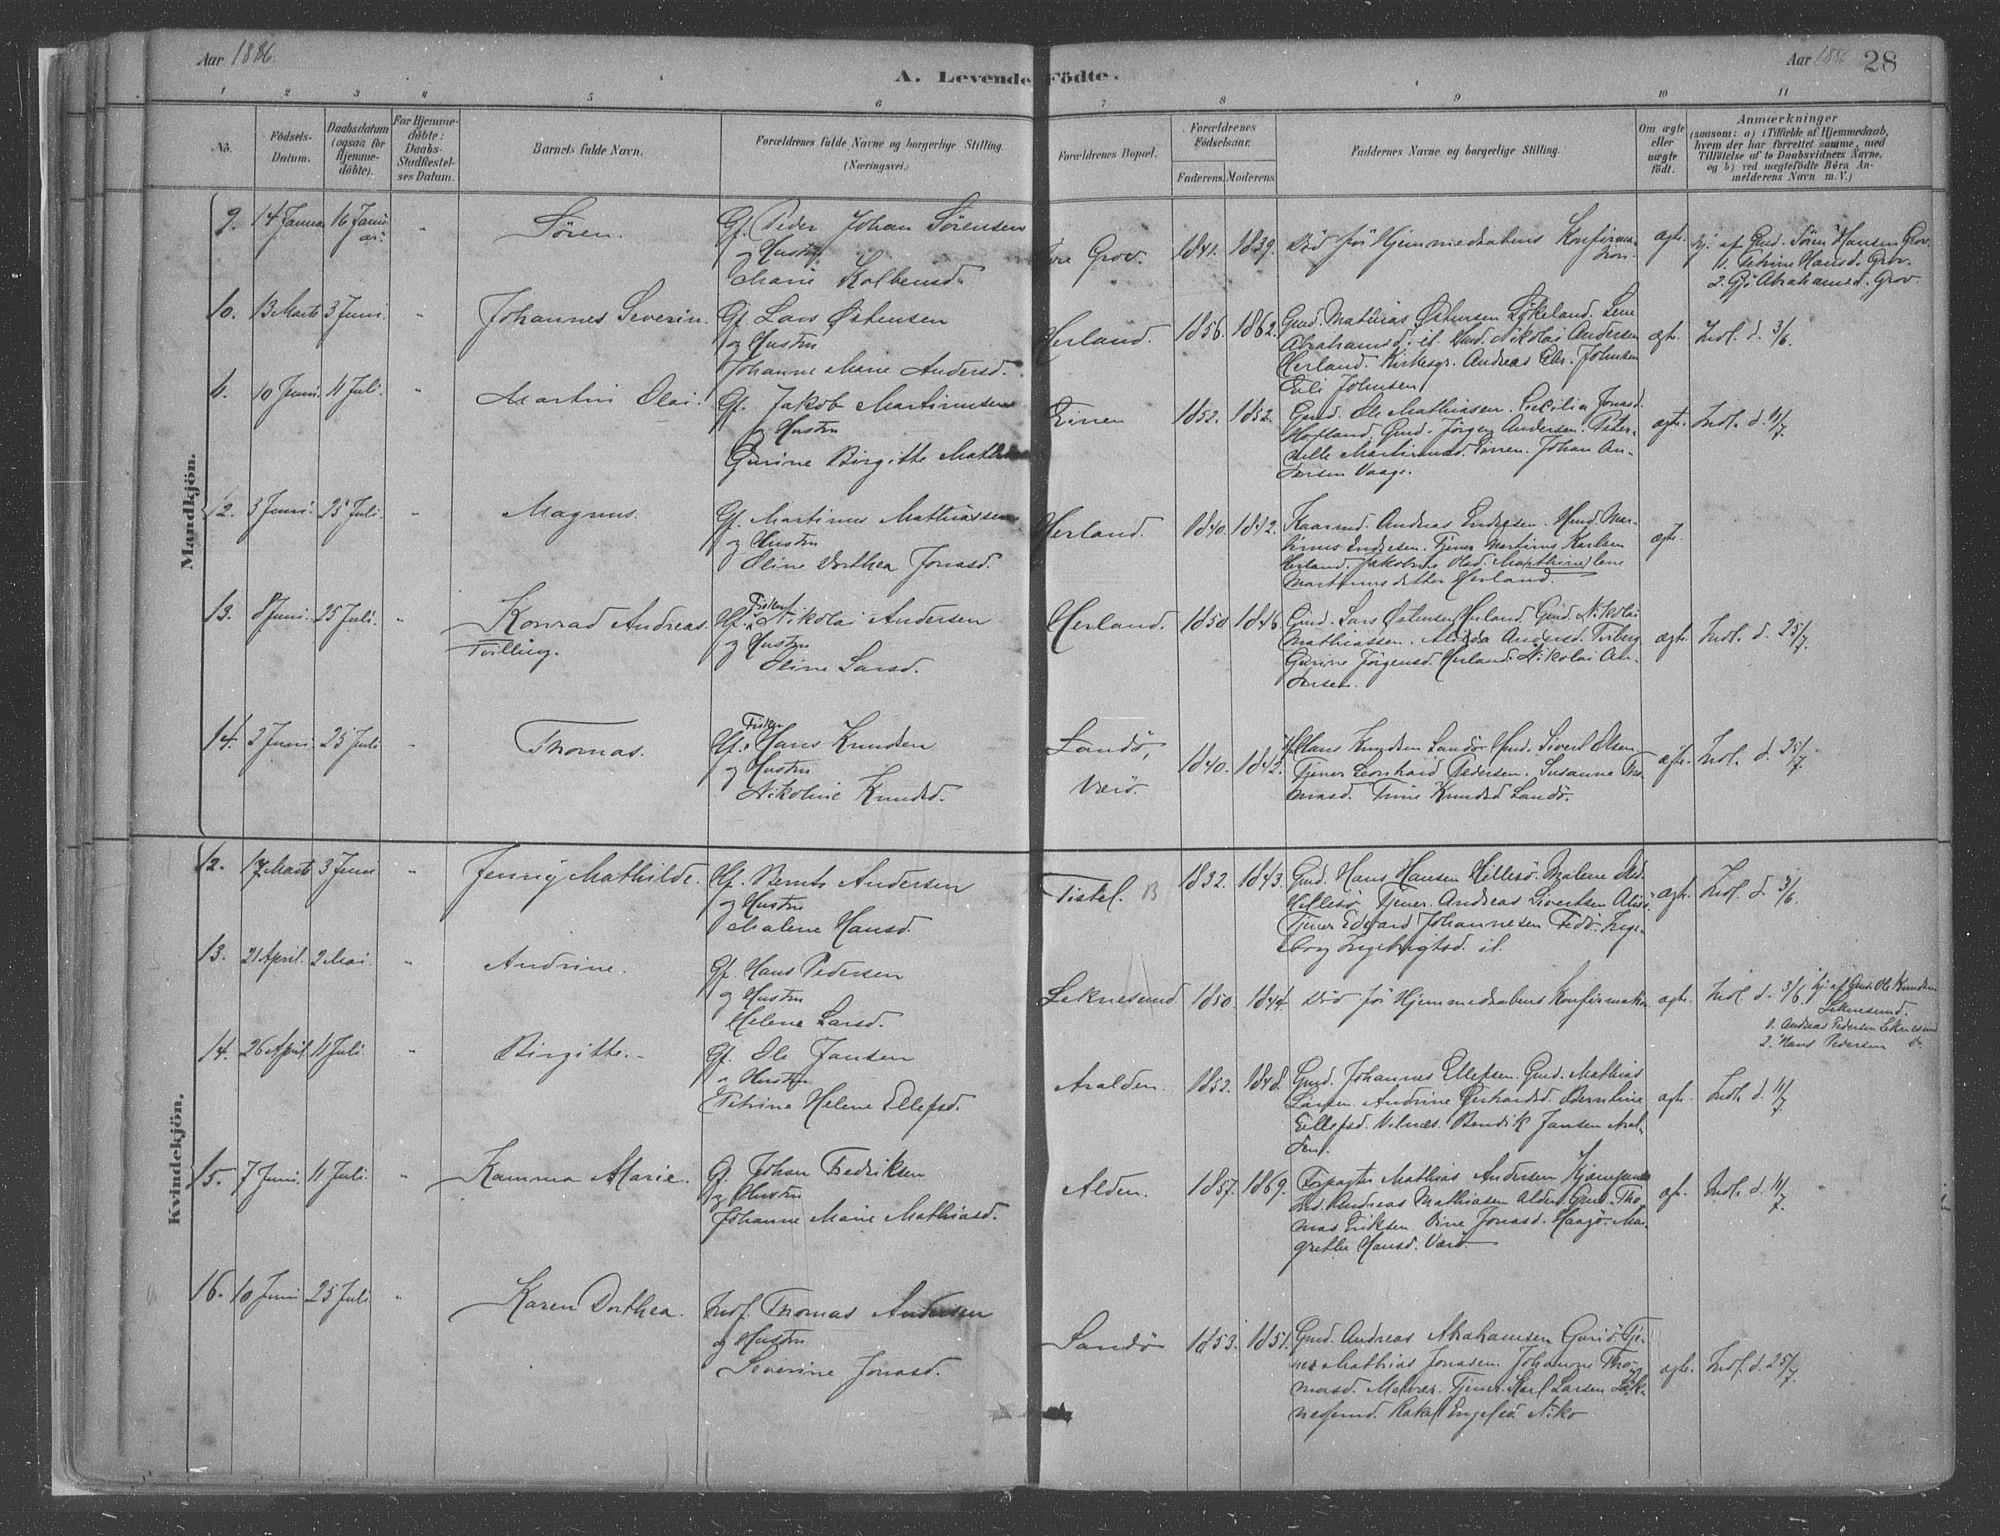 Aar 1886.
A. Levende Födte.
Aar 1886 28
1 2 3 4 5 6 7 8 9 10 11
No.
Födsels-
Datum.
Daabsdatum
(ogsaa for
Hjemme-
döbte).
For Hjemme-
döbte:
Daabs-
Stadfæstel-
ses Datum.
Barnets fulde Navn.
Forældrenes fulde Navne og borgerlige Stilling.
(Næringsvei.)
Forældrenes Bopæl.
Forældrenes
Födselsaar.
Faderens. Moderens.
Faddernes Navne og borgerlige Stilling.
Om ægte
eller
uægte
födt.
Anmærkninger
(saasom: a) i Tilfælde af Hjemmedaab,
hvem der har forrettet samme, med
Tilföielse af to Daabsvidners Navne.
og b) ved uægtefödte Börn An-
melderens Navn m. V.)
Mandkjön.
9. 14 Januar 16 Janu-
ar. " Sören. Gf. Peder Johan Sörensen
og Hustru
Marie Kolbensd.
Grov. 1841. 1839. Död för Hjemmedaabens Konfirma-
tion. ægte. hj. af Gmd. Sören Hansen Grov.
1. Petrine Hansd. Grov.
2. Gjö Abrahamsd. Grov.
10. 13 Marts 3 Juni. " Johannes Severin. Gf. Lars Östensen
og Hustru
Johanne Marie Andersd.
Herland. 1856. 1862. Gmd. Mathias Östensen Lökeland. Lene
Abrahamsd. il. Gmd. Nikolai Andersen
Herland. Kirkesgr. Andreas Chr. Johnsen
Eli Johnsen
ægte. Indl. d. 3/6.
11. 10 Juni. 11 Juli. " Martin Olai. Gf. Jakob Martinusen
og Hustru
Gurine Birgitte Math
Einen 1852. 1852. Gmd. Ole Mathiasen. Cecilia Jonasd.
Hofland. Gmd. Jörgen Andersen. Peter-
nelle Martinusd. Einen. Johan An-
dersen Vaage.
ægte. Indl. d. 11/7
12. 3 Juni. 25 Juli. " Magnus. Gf. Martinus Mathiassen
og Hustru
Oline Dorthea Jonasd.
Herland. 1840. 1842. Kaarmd. Andreas Endresen. Gmd. Mar-
tinus Endresen. Tjener Martinus Karlsen
Herland. Jakobine Olsd. Mapthine Lene
Martinusdatter Herland.
ægte.
13. 8 Juni. 25 Juli. " Konrad Andreas.
Tvilling.
Fisker
Gf. Nikolai Andersen
og Hustru
Oline Larsd.
Herland. 1850 1846. Gmd. Lars Östensen Herland. Gmd. Nikolai
Mathiassen. Alida Andersd. Torberg
Gurine Jörgensd. Herland. Nikolai An-
dersen.
ægte. Indl. d. 25/7.
14. 2 Juni. 25 Juli " Thomas. Fisker
Gf. Hans Knudsen
og Hustru
Nikoline Knudsd.
Sandö,
Værö. 1840. 1842. Hans Knudsen Sandö. Gmd. Sivert Olsen.
Tjener Leonhard Pedersen. Susanne Tho-
masd. Trine Knudsd Sandö.
ægte. Indl. d. 25/7.
Kvindekjön.
12. 17 Marts 3 Juni " Jenny Mathilde. Gf. Bernts Andersen
og Hustru
Malene Hansd.
Tistel. B 1832. 1843. Gmd. Hans Hansen Hillesö. Malene Olsd.
Hillesö. Tjener. Andreas Sivertsen
Tjener Edvard Johannesen Fedö. Inge-
borg Ingebrigtsd. il.
ægte. Indl. d. 3/6.
13. 21 April. 2 Mai. " Andrine. Gf. Hans Pedersen
og Hustru
Helene Larsd.
Leknesund 1850. 1844. Död för Hjemmedaabens Konfirmation
ægte. Indl. d. 3/6. hj. af Gmd. Ole Knudsen
Leknesund.
1. Andreas Pedersen Leknesund
2. Hans Pedersen do
14. 26 April. 11 Juli. " Birgitte. Gf. Ole Jansen
og Hustru
Petrine Helene Ellefsd.
Aralden. 1852. 1848. Gmd. Johannes Ellefsen. Gmd. Mathias
Larsen. Andrine Gerhardsd. Berntine
Ellefsd. Vilnæs. Bendik Jansen Aral-
den.
ægte. Indl. d. 11/7
15. 7 Juni. 11 Juli. " Kamma Marie. Gf. Johan Fredriksen
og Hustru
Johanne Marie Mathiasd.
Alden. 1857. 1869. Forpagter Mathias Andersen
Andreas Mathiasen Alden. Gmd. Tho-
mas Eriksen. Oine Jonasd. Haagö. Mar-
grethe Hansd. Værö.
ægte. Indl. d. 11/7
16. 10 Juni 25 Juli. " Karen Dorthea. Indf. Thomas Andersen
og Hustru
Severine Jonasd.
Sandö 1853. 1851. Gmd. Andreas Abrahamsen Gasö. Tje-
ner Mathias Jonasen. Johanne Tho-
masd. Melvær. Tjener Karl Larsen Lek-
nessund. Rakel Engelsd. Niko
ægte. Indl. d. 25/7